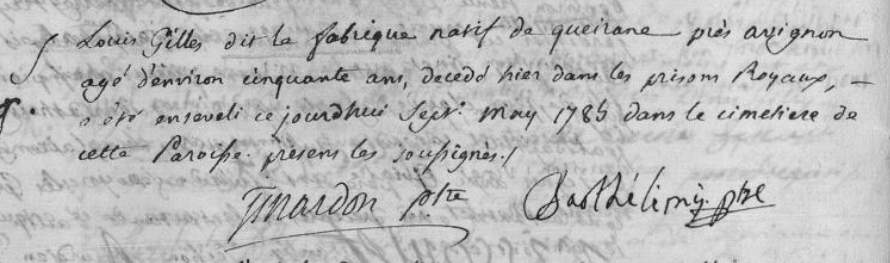 Louis Gilles dit la fabrique natif de queirane près avignon
agé d'environ cinquante ans, decedé hier dans les prisons Royaux,
a été enseveli ce jourdhui Sept. May 1785 dans le cimetiere de
cette Paroisse. présens les soussignés./
Barthélimy. ptre